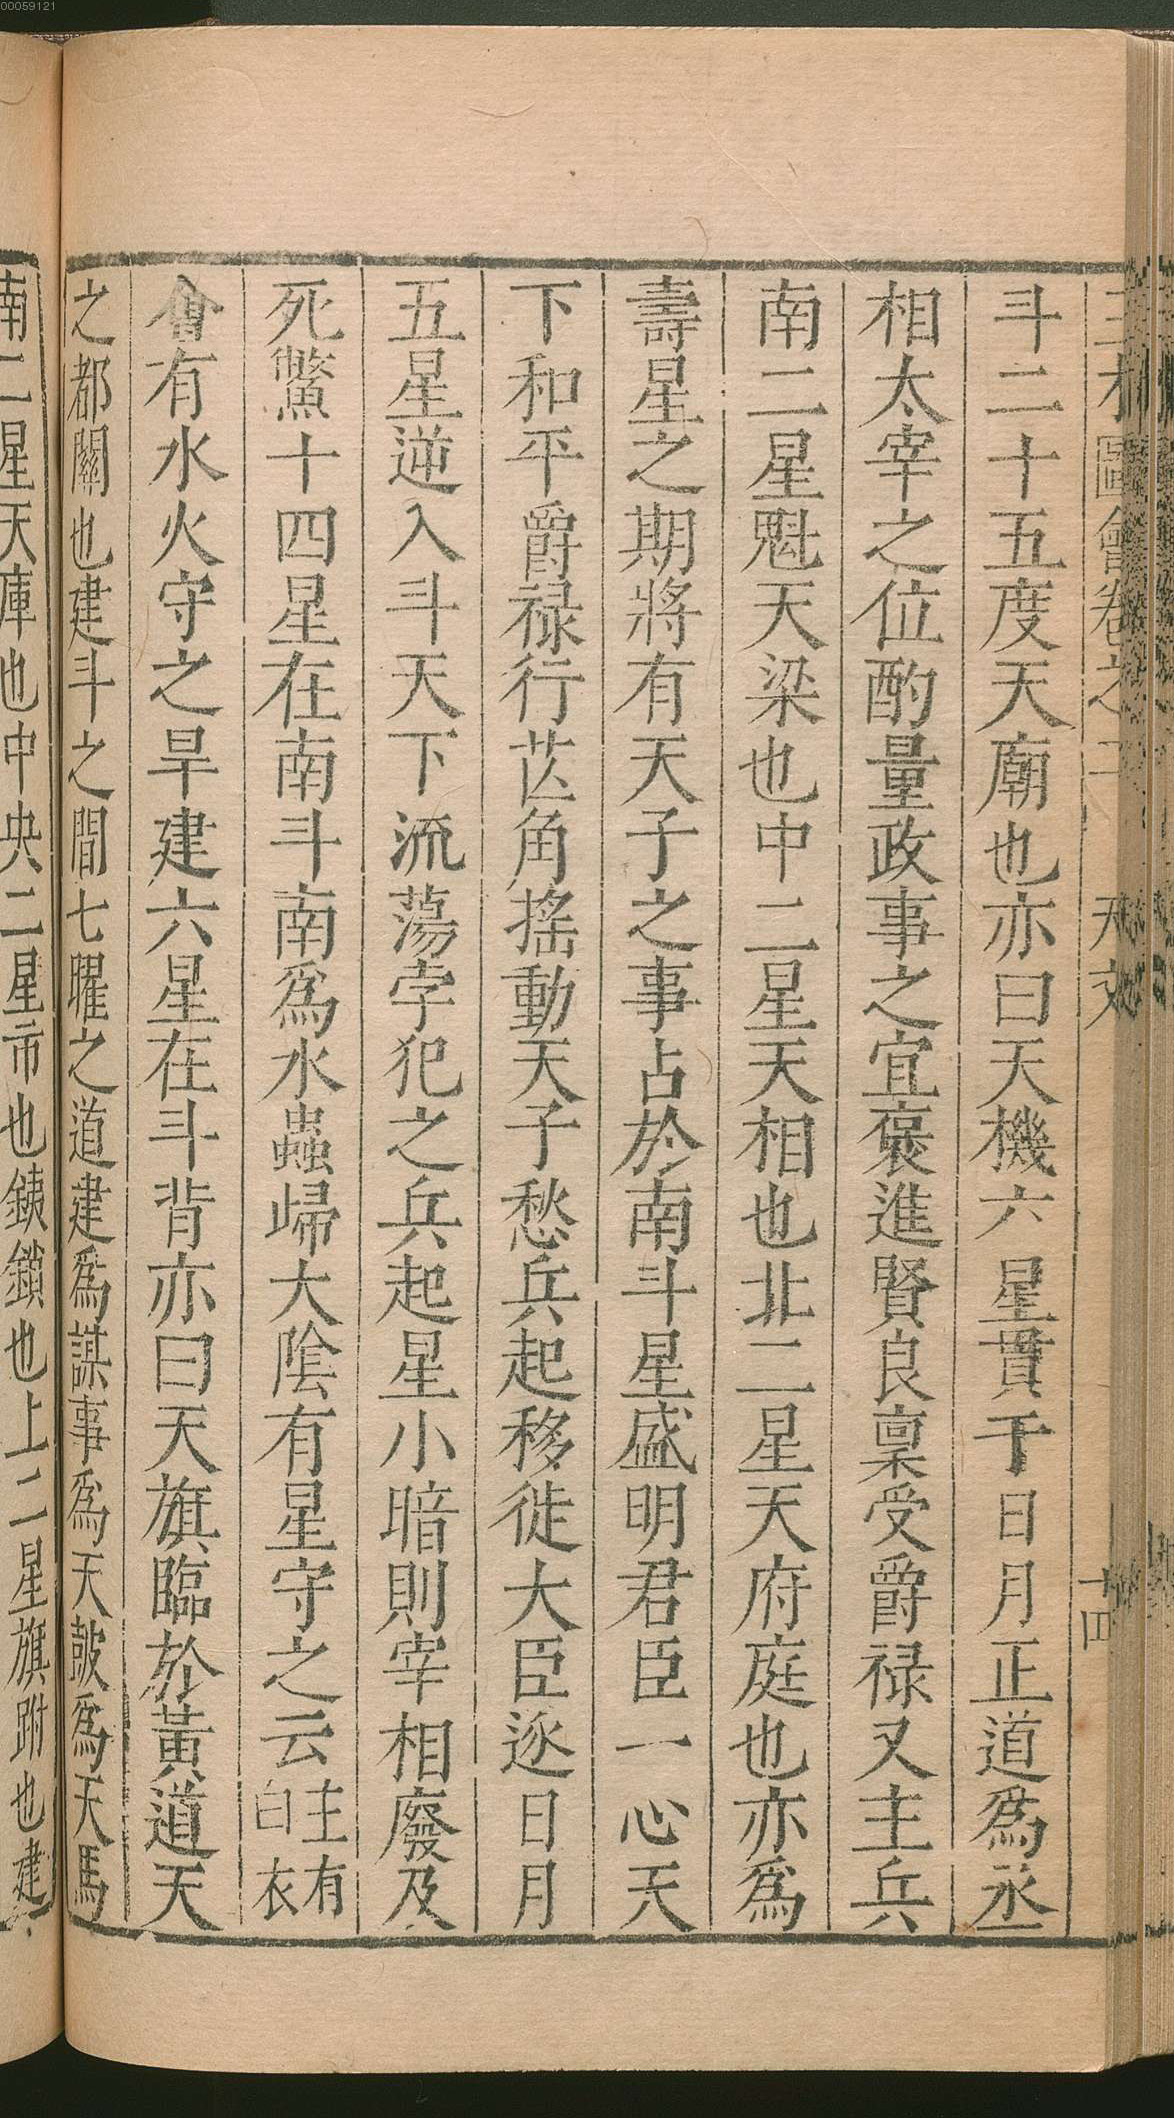 00059121
三才圖會卷之二 天文 十四
斗二十五度天廟也亦曰天機六星貫于日月正道爲丞
相太宰之位酌量政事之宜褒進賢良稟受爵祿又主兵
南二星魁天梁也中二星天相也北二星天府庭也亦爲
壽星之期將有天子之事占於南斗星盛明君臣一心天
下和平爵祿行芒角搖動天子愁兵起移徙大臣逐日月
五星逆入斗天下流蕩孛犯之兵起星小暗則宰相廢及
死鱉十四星在南斗南爲水蟲歸大陰有星守之云主有白衣
會有水火守之旱建六星在斗背亦曰天旗臨於黃道天
之都關也建斗之間七曜之道建爲謀事爲天鼓爲天馬
南二星天庫也中央二星市也鈇鑕也上二星旗跗也建